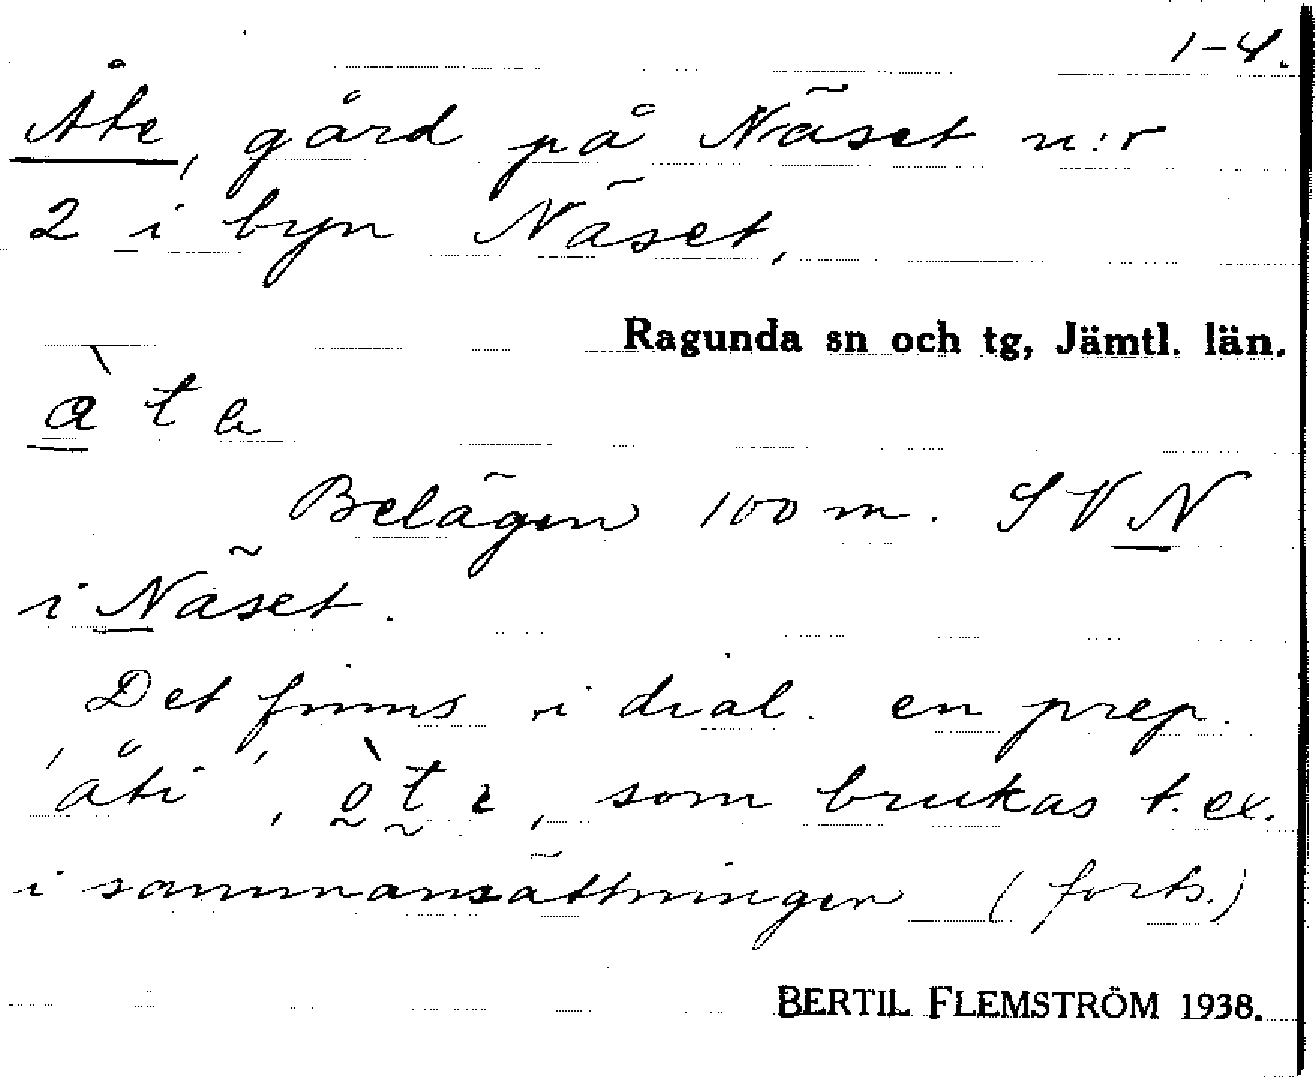 1-4.
Åte, gård på Näset n:r
2 i byn Näset,
Ragunda sn och tg, Jämtl. län.
Belägen 100 m. SV N
i Näset.
Det finns i dial. en prep.
'åti', òtı, som brukas t. ex.
i sammansättningen (forts.)
BERTIL FLEMSTRÖM 1938.